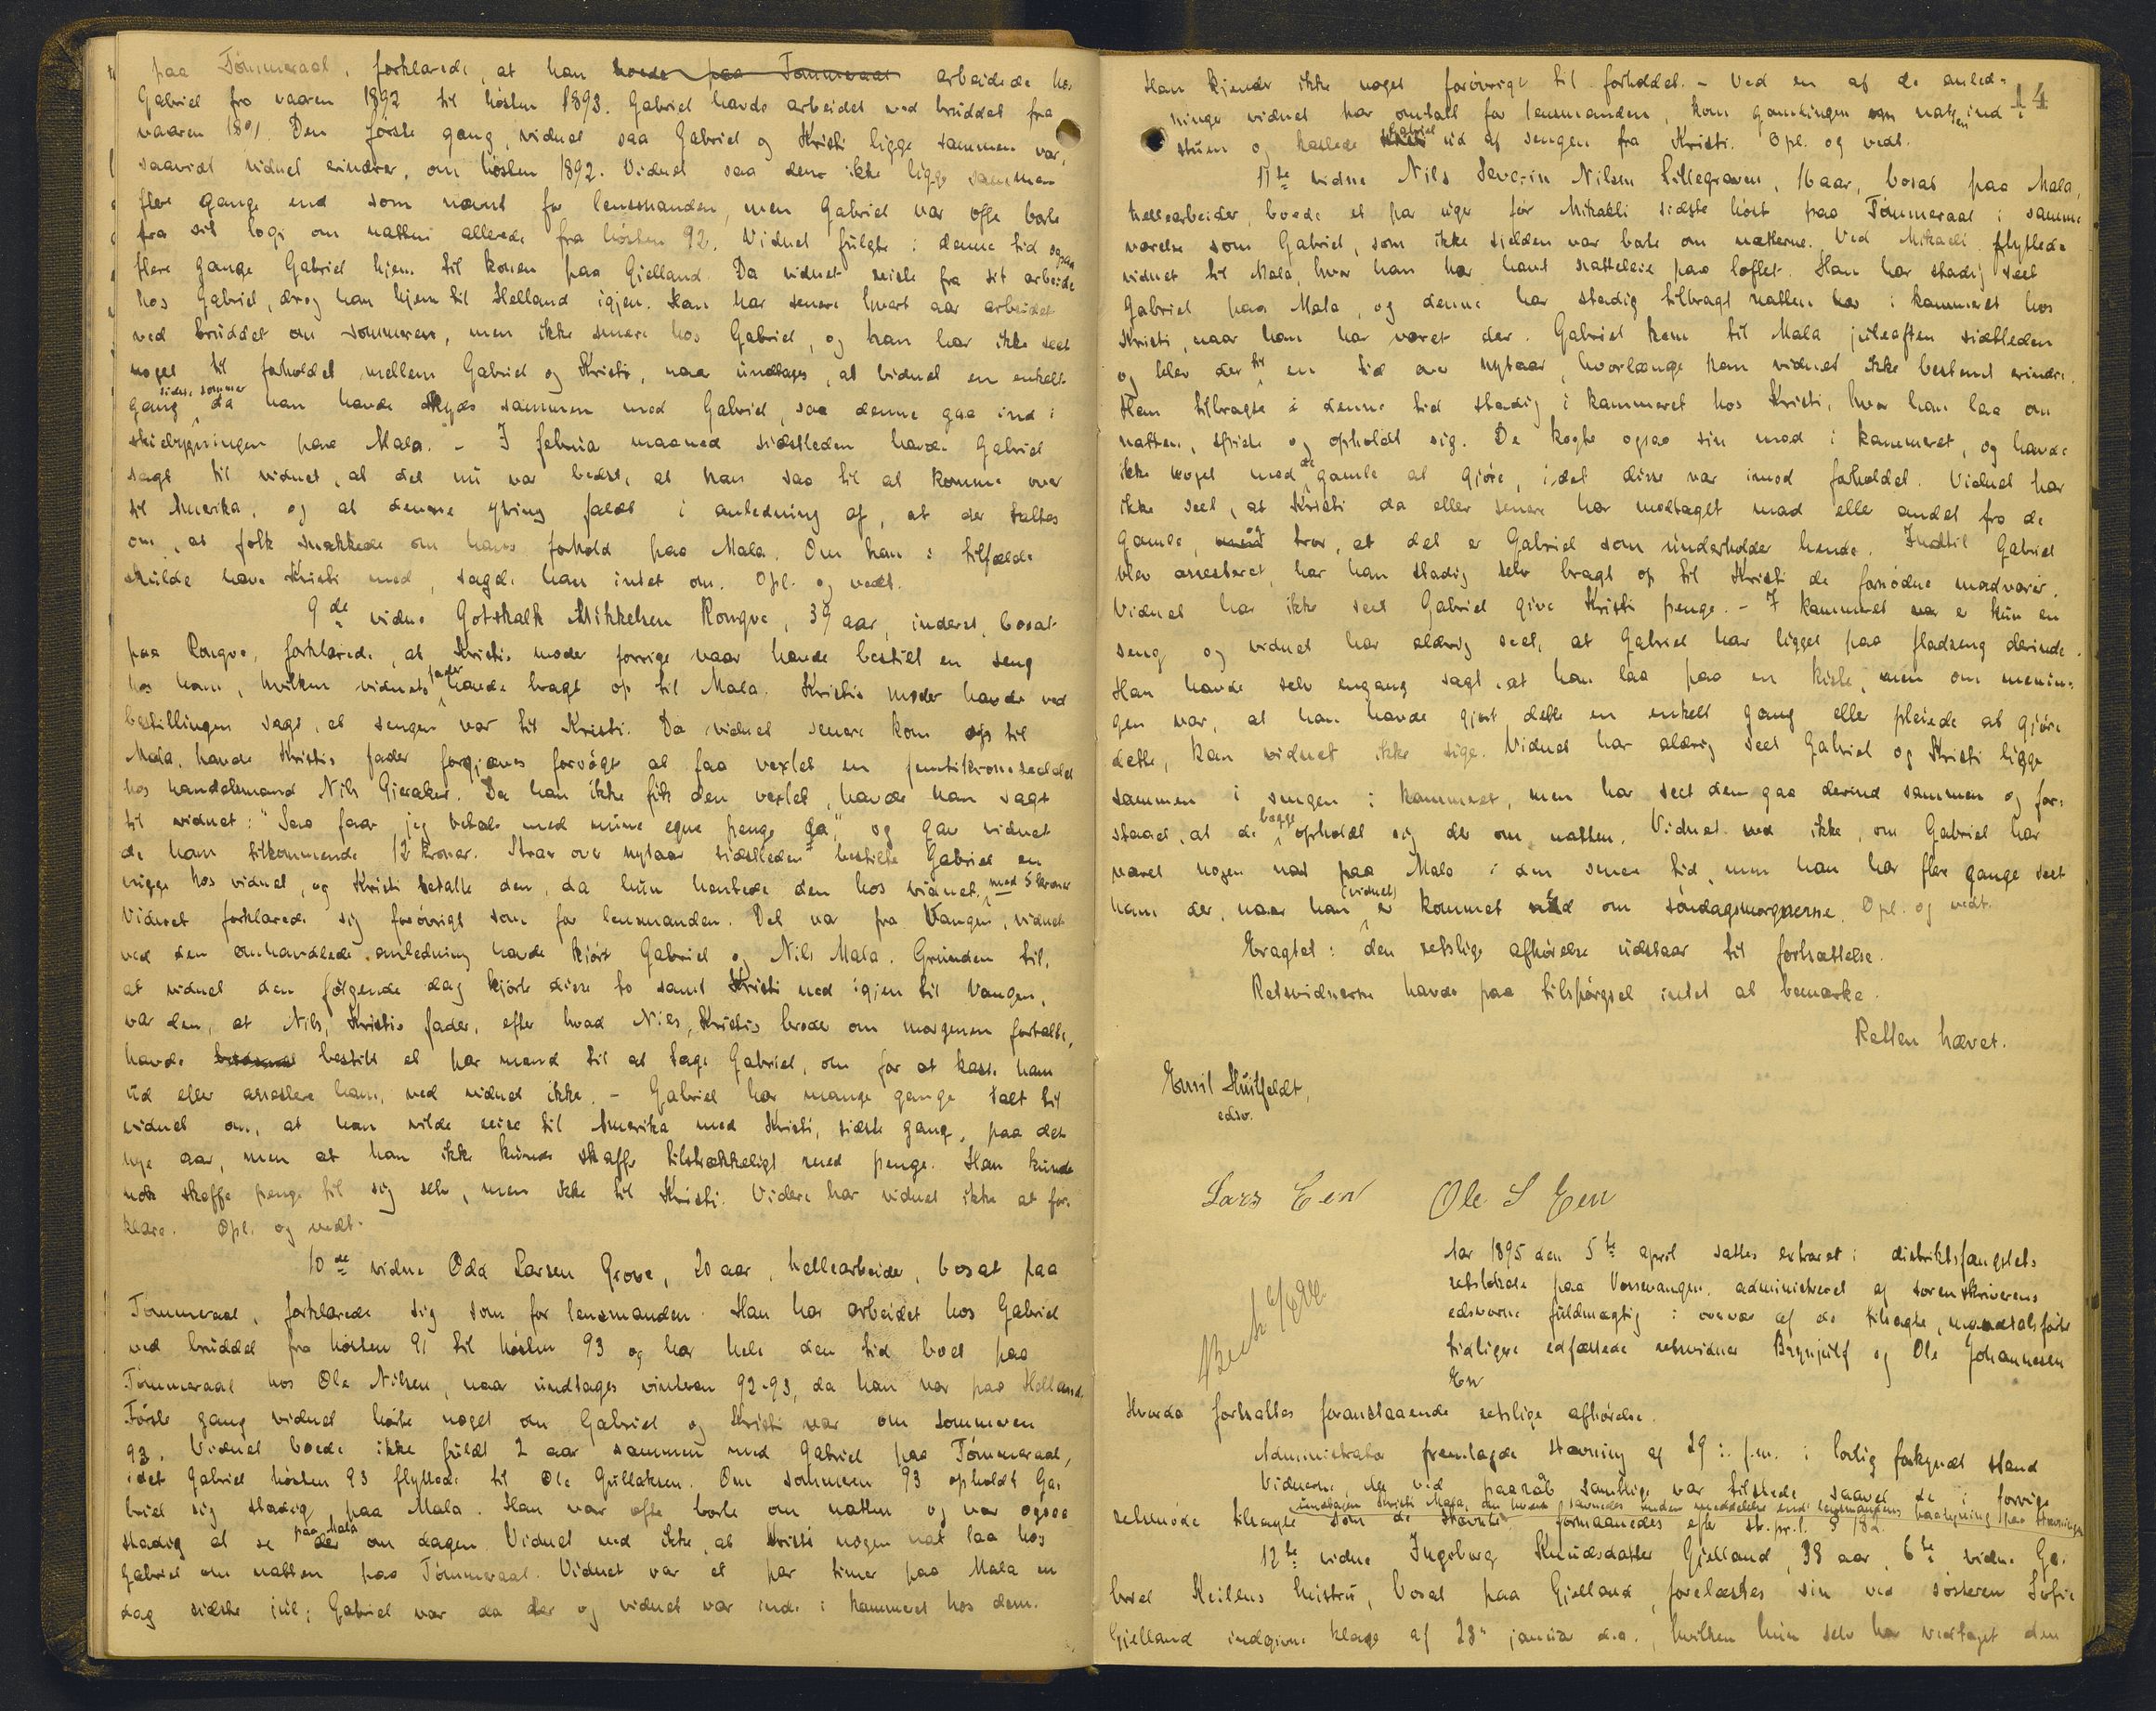 paa Tömmeraal, forklarede, at han boede paa Tömmeraal arbeidede hos
Gabriel fra vaaren 1892 til hösten 1893. Gabriel havde arbeidet ved bruddet fra
vaaren 1891. Den förste gang, vidnet saa Gabriel og Kristi ligge sammen var,
saavidt vidnet erindrer, om hösten 1892. Vidnet saa dem ikke ligge sammen
flere gange end som nævnt for lensmanden, men Gabriel var ofte borte
fra sit logi om natten allerede fra hösten 92. Vidnet fulgte i denne tid ogsaa
flere gange Gabriel hjem til konen paa Gjelland. Da vidnet reiste fra sit arbeide
hos Gabriel, drog han hjem til Helland igjen. Han har senere hvert aar arbeidet
ved bruddet om sommeren, men ikke senere hos Gabriel, og han har ikke seet
noget til forholdet mellem Gabriel og Kristi, naar undtages, at vidnet en enkelt
gang sidste sommer da han havde skyds sammen med Gabriel, saa denne gaa ind i
bygningen paa Mala. - I februar maaned sidstleden havde Gabriel
sagt til vidnet, at det nu var bedst, at han saa til at komme over
til Amerika, og at denne ytring faldt i anledning af, at der taltes
om, at folk snakkede om hans forhold paa Mala. Om han i tilfælde
skulde have Kristi med, sagde han intet om. Opl. og vedt.
9de vidne Gotskalk Mikkelsen Rongve, 39 aar, inderst, bosat
paa Rongve, forklarede, at Kristis moder forrige vaar havde bestilt en seng
hos ham, hvilken vidnets fader havde bragt op til Mala. Kristis moder havde ved
bestillingen sagt, at sengen var til Kristi. Da vidnet senere kom op til
Mala, havde Kristis fader forgjæves forsögt at faa vexlet en femtikroneseddel
hos handelsmand Nils Gjeraker. Da han ikke fik den vexlet, havde han sagt
til vidnet: "Saa faar jeg betale med mine egne penge da," og gav vidnet
de ham tilkommende 12 kroner. Strax over nytaar sidstleden bestilte Gabriel en
vugge hos vidnet, og Kristi betalte den, da hun hentede den hos vidnet, med 5 kroner
Vidnet forklarede sig forövrigt som for lensmanden. Det var fra Vangen, vidnet
ved den omhandlede anledning havde kjört Gabriel og Nils Mala. Grunden til,
at vidnet den fölgende dag kjörte disse to samt Kristi ned igjen til Vangen,
var den, at Nils, Kristis fader, efter hvad Nils, Kristis broder om morgenen fortalte,
havde bestilt et par mænd til at tage Gabriel, om for at kaste ham
ud eller arrestere ham, ved vidnet ikke. - Gabriel har mange gange talt til
vidnet om, at han vilde reise til Amerika med Kristi, sidste gang, paa det
nye aar, men at han ikke kunde skaffe tilstrækkeligt med penge. Han kunde
nok skaffe penge til sig selv, men ikke til Kristi. Videre har vidnet ikke at for-
klare. Opl. og vedt.
10de vidne Odd Larsen Grove, 20 aar, hellearbeider, bosat paa
Tömmeraal, forklarede sig som for lensmanden. Han har arbeidet hos Gabriel
ved bruddet fra hösten 91 til hösten 93 og har hele den tid boet paa
Tömmeraal hos Ole Nilsen, naar undtages vinteren 92-93, da han var paa Helland.
Förste gang vidnet hörte noget om Gabriel og Kristi var om sommeren
93. Vidnet boede ikke fuldt 2 aar sammen med Gabriel paa Tömmeraal,
idet Gabriel hösten 93 flyttede til Ole Gullaksen. Om sommeren 93 opholdt Ga-
briel sig stadig paa Mala. Han var ofte borte om natten og var ogsaa
stadig at se paa Mala der om dagen. Vidnet ved ikke, at Kristi nogen nat laa hos
Gabriel om natten paa Tömmeraal. Vidnet var et par timer paa Mala en
dag sidste jul; Gabriel var da der og vidnet var inde i kammeret hos dem.
14
Han kjender ikke noget forövrigt til forholdet. - Ved en af de anled-
ninge vidnet har omtalt for lensmanden, kom gamlingen om natten ind i
stuen og kaldte Gabriel ud af sengen fra Kristi. Opl. og vedt.
11te vidne Nils Severin Nilsen Lillegraven, 16 aar, bosat paa Mala,
hellearbeider, boede et par uger för Mikaeli sidste höst paa Tömmeraal i samme
værelse som Gabriel, som ikke sjelden var borte om nætterne. Ved Mikaeli flyttede
vidnet til Mala, hvor han har havt natteleie paa loftet. Han har stadig seet
Gabriel paa Mala, og denne har stadig tilbragt natten i kammeret hos
Kristi, naar han har været der. Gabriel kom til Mala juleaften sidstleden
og blev der til en tid over nytaar, hvorlænge kan vidnet ikke bestemt erindre.
Han tilbragte i denne tid stadig i kammeret hos Kristi, hvor han laa om
natten, spiste og opholdt sig. De kogte ogsaa sin mad i kammeret, og havde
ikke noget med de gamle at gjöre, idet disse var imod forholdet. Vidnet har
ikke seet, at Kristi da eller senere har modtaget mad eller andet fra de
gamle, tror, at det er Gabriel som underholder hende. Indtil Gabriel
blev arresteret, har han stadig selv bragt op til Kristi de fornödne madvarer.
Vidnet har ikke seet Gabriel give Kristi penge. - I kammeret er kun en
seng og vidnet har aldrig seet, at Gabriel har ligget paa fladseng derinde.
Han havde selv engang sagt, at han laa paa en kiste, men om menin-
gen var, at han havde gjort dette en enkelt gang eller pleiede at gjöre
dette, kan vidnet ikke sige. Vidnet har aldrig seet Gabriel og Kristi ligge
sammen i sengen i kammeret, men har seet dem gaa derind sammen og for-
staaet, at de begge opholdt sig der om natten. Vidnet ved ikke, om Gabriel har
været nogen nat paa Mala i den senere tid, men han har flere gange seet
ham der, naar han (vidnet) er kommet ned om söndagsmorgnerne. Opl. og vedt.
Eragtet: den retslige afhörelse udstaar til fortsættelse.
Retsvidnerne havde paa tilspörgsel intet at bemærke.
Retten hævet.
Emil Huitfeldt,
edsv.
Lars Een Ole S Een
Aar 1895 den 5te april sattes extraret i distriktsfængslets
retslokale paa Vossevangen, administreret af sorenskriverens
edsvorne fuldmægtig i overvær af de tilsagte,
tidligere edfæstede retsvidner Brynjulf og Ole Johannesen
En
Hvorda fortsattes foranstaaende retslige afhörelse.
Administrator fremlagde stævning af 29 : f.m. i lovlig forkyndt stand
Vidnerne, der ved paaraab samtlige var tilstede saavel de i forrige
undtagen Kristi Mala, om hvem savnedes lensmandens paategning paa stævningen
retsmöde tilsagte som de stævnte formaanedes efter str.pr.l. § 182.
12te vidne Ingeborg Knudsdatter Gjelland, 38 aar 6te vidne Ga-
briel Keilens hustru, bosat paa Gjelland, forelæstes sin ved sösteren Sofie
Gjelland indgivne klage af 28 januar d.a., hvilken hun selv har vedtaget den